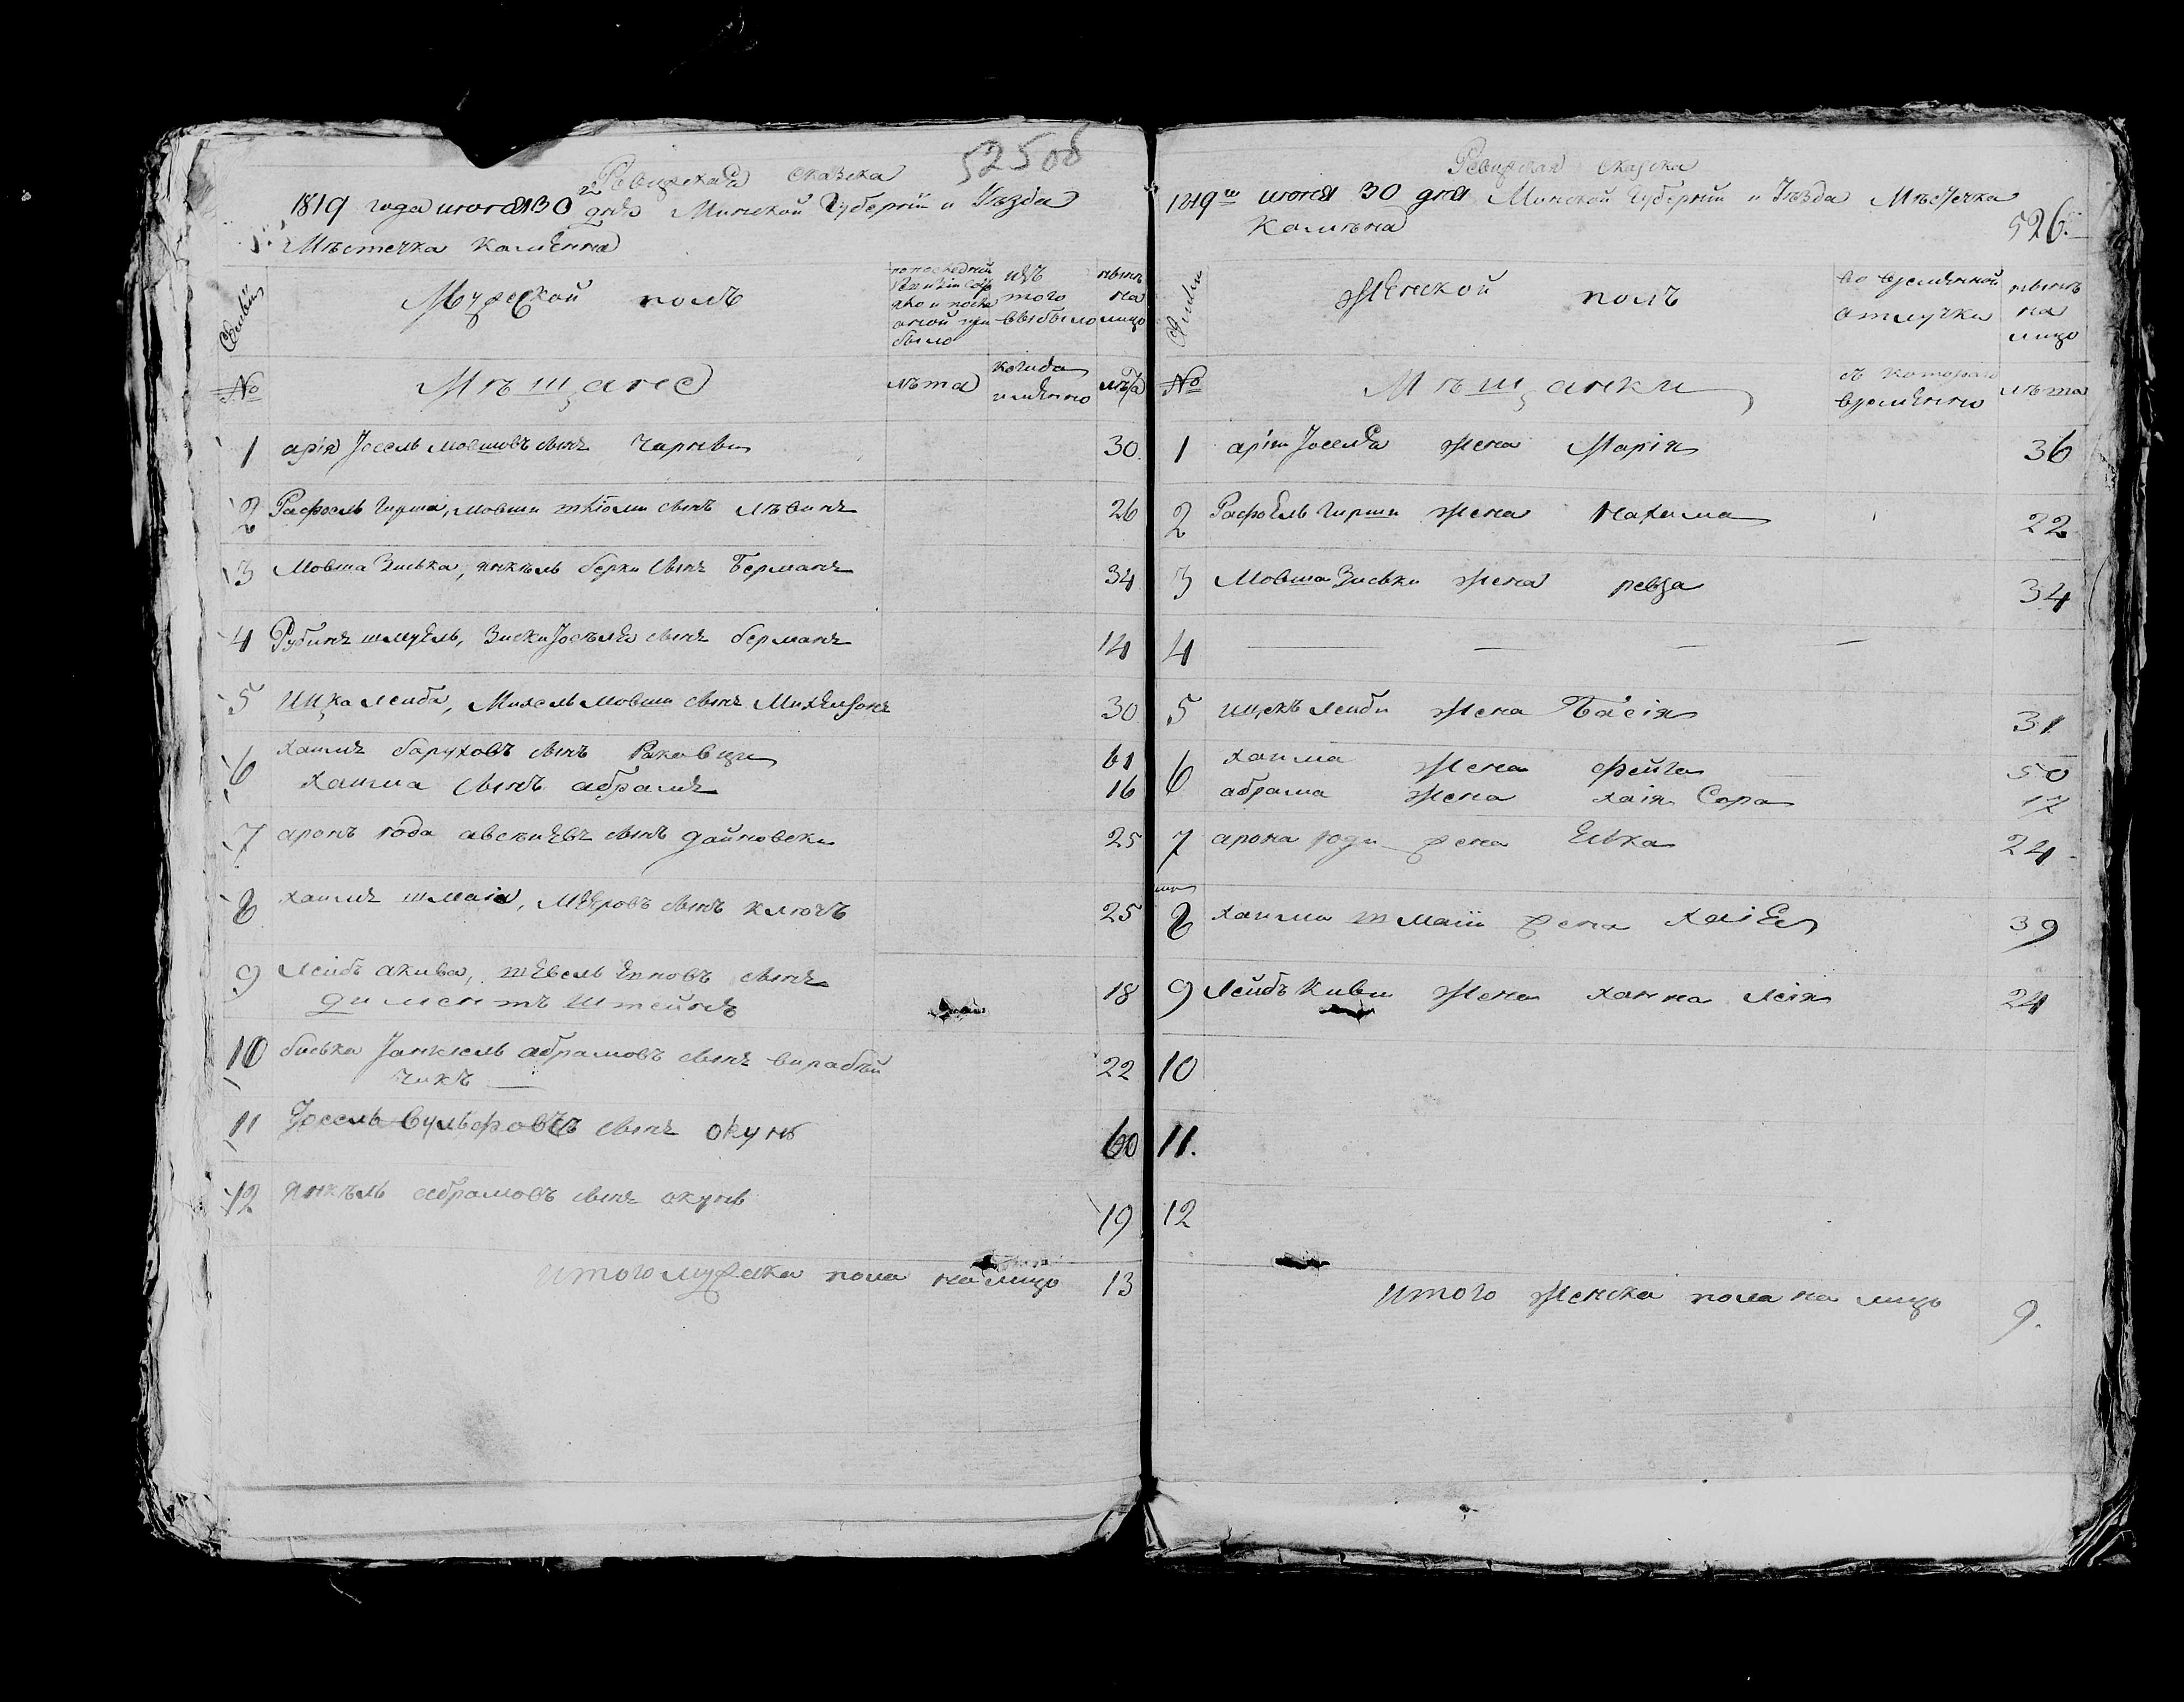 525 об
Ревизская сказка
1819 года июня 30 дня Минской Губернии и Уѣзда
Мѣстечка Каменна
Семьи
Мужеской полъ
изъ того выбыло
нынѣ на лицо
№
Мѣщане
лѣта
когда именно
лѣта
1 арія Јосель мовшовъ сынъ Чарны 30
2 Рафоель гирша, мовши сынъ лѣвинъ 26
3 Мовша Зиська, янкель берки сынъ Берманъ 34
4 Рубинъ шмуель, Зиски сынъ берманъ 14
5 Ицка лейба, Михель мовши сынъ Михелзонъ 30
6 хаимъ баруховъ сынъ Раковщи 61
хаима сынъ абрамъ 16
7 аронъ юда сынъ дайновски 25
8 хаимъ шмаія, Мееровъ сынъ ключъ 25
9 лейбъ акива, сынъ
диментъ штейнъ 18
10 биська Јанкель абрамовъ сынъ вирабей
чикъ 22
11 Јосель вульфовъ сынъ окунь 60
12 янкель абрамовъ сынъ окунь 19
итого мужеска пола на лицо 13
Ревизская сказка
1819 июня 30 дня Минской Губернии и Уѣзда Мѣстечка
Каменна
526.
Семьи
Женской полъ
во временной отлучки
нынѣ на лицо
№
Мѣщанки
съ котораго времени
лѣта
1 аріи Јоселя жена Марія 36
2 Рафоель гирши жена Нахама 22
3 Мовша Зиськи жена ревза 34
4
5 ицекъ лейби жена Басія 31
6 хаима жена фейга 50
абрама жена хаія Сора 17
7 арона юди жена Елька 24
8 хаима шмаіи жена хаіе 39
9 лейбъ Киви жена ханна леія 24
10
11.
12
итого женска пола на лицо 9.